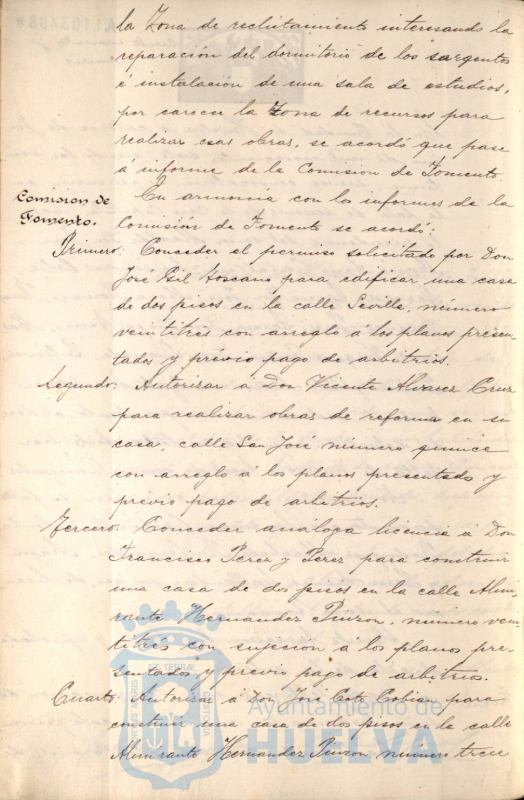 la Zona de reclutamiento interesando la
reparación del dormitorio de los sargentos
é instalación de una sala de estudios,
por carecer la Zona de recursos para
realizar esas obras, se acordó que pase
á informe de la Comision de Fomento.
Comision de
Fomento.
En armonía con los informes de la
Comisión de Fomento se acordó:
Primero: Conceder el permiso solicitado por Don
José Gil Toscano para edificar una casa
de dos pisos en la calle Sevilla, número
veintitrés con arreglo á los planos presen-
tados y prévio pago de arbitrios.
Segundo: Autorizar á Don Vicente Alvarez Cruz
para realizar obras de reforma en su
casa, calle San José número quince
con arreglo á los planos presentados y
prévio pago de arbitrios.
Tercero: Conceder análoga licencia á Don
Francisco Perez y Perez para construir
una casa de dos pisos en la calle Almi-
rante Hernandez Pinzon, número vein-
titrés con sujeción á los planos pre-
sentados y previo pago de arbitrios.
Cuarto: Autorizar á Don José Coto Cobian para
construir una casa de dos pisos en la calle
Almirante Hernandez Pinzon número trece
Ayuntamiento de
HUELVA